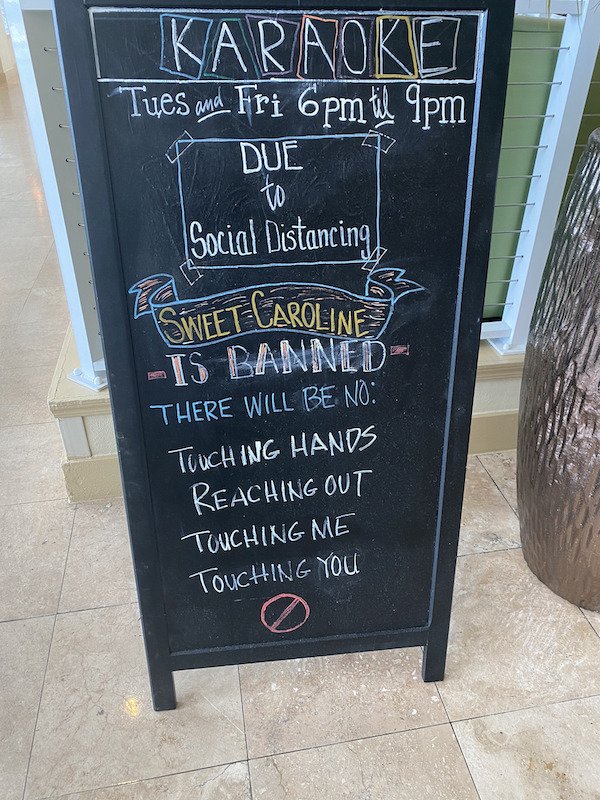 KARAOKE
Tues and Fri 6pm til 9pm
DUE
to
Social Distancing
SWEET CAROLINE
IS BANNED
THERE WILL BE NO:
TOUCHING HANDS
REACHING OUT
TOUCHING ME
TOUCHING YOU